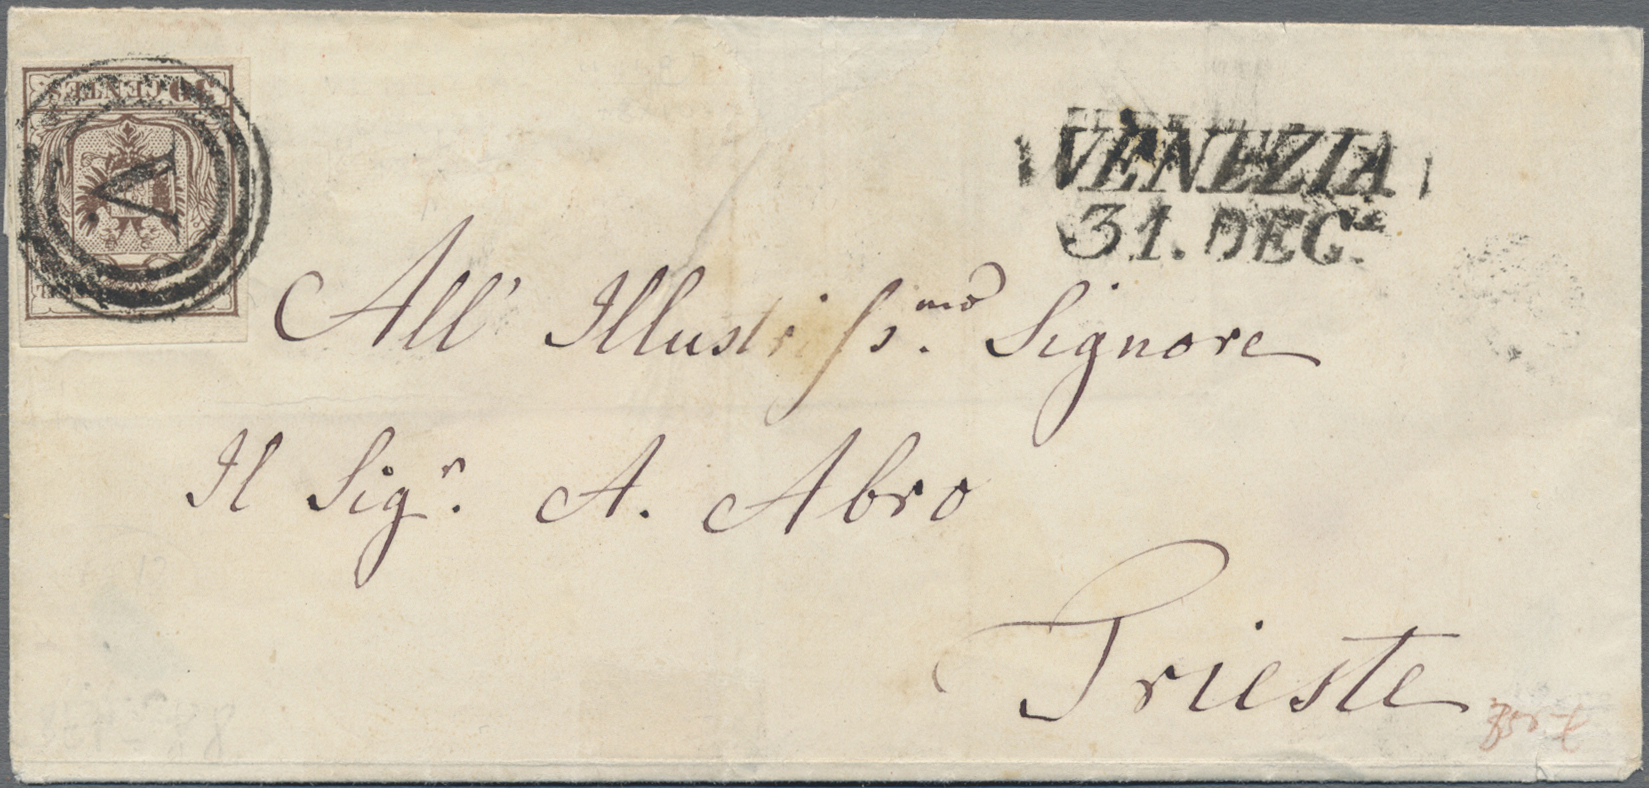 30 CENTES
V.
VENEZIA
31. DEC.
All' Illustriss.mo Signore
Il Sigr. A. Abro
Trieste